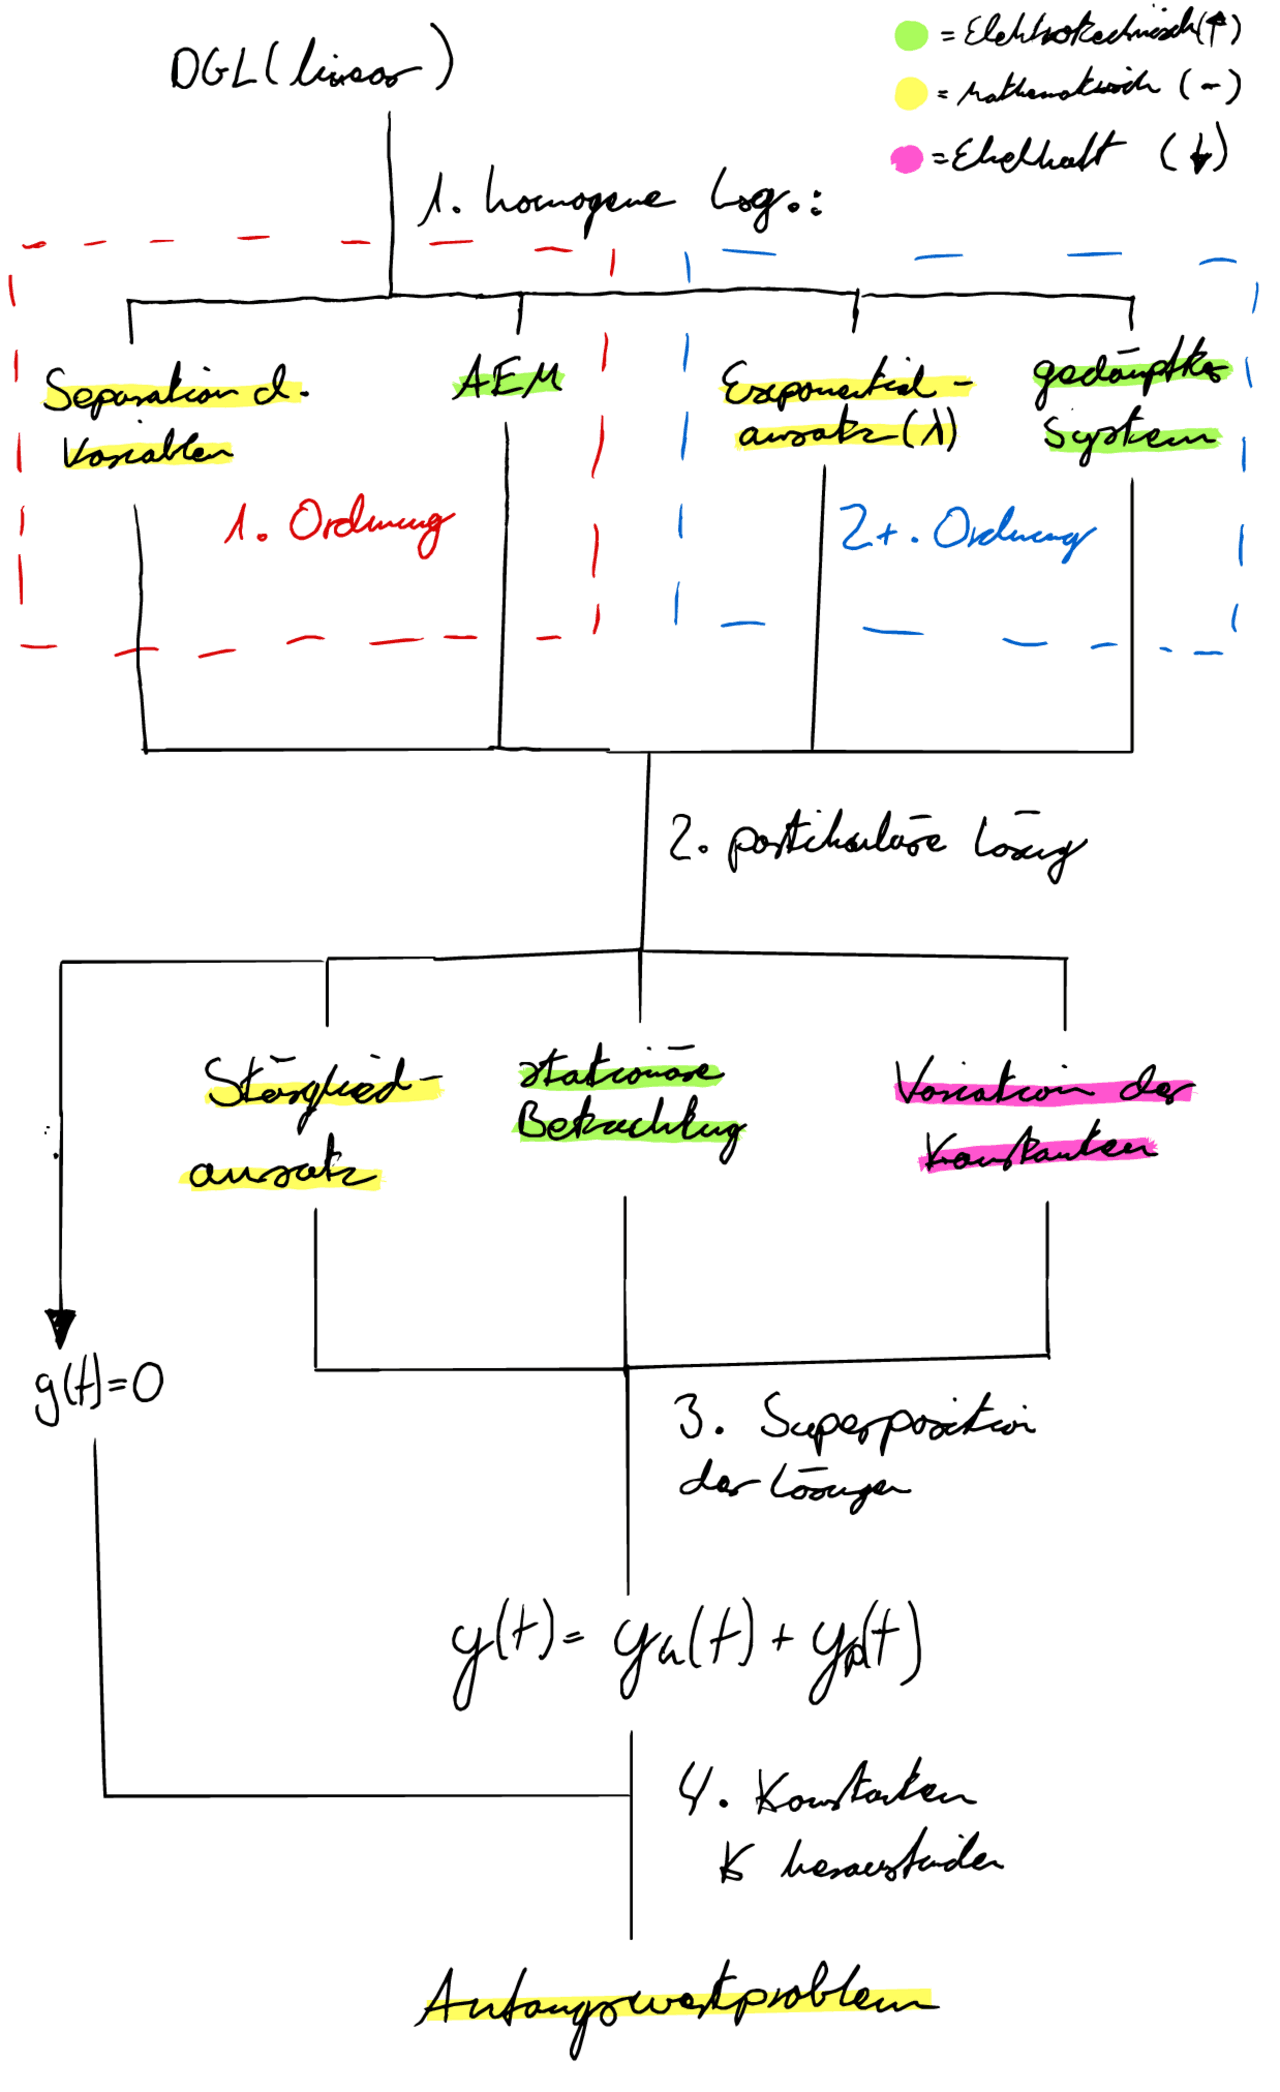 DGL (linear)
= Elektrotechnisch (↑)
= Mathematisch (-)
= Ekelhaft (↓)
1. homogene Lsg.:
Separation d.
Variablen
AEM
Exponential-
ansatz (λ)
gedämpftes
System
1. Ordnung
2+. Ordnung
2. partikuläre Lösung
Störglied-
ansatz
stationäre
Betrachtung
Variation der
Konstanten
g(t)=0
3. Superposition
der Lösungen
y(t) = yh(t) + yp(t)
4. Konstanten
K herausfinden
Anfangswertproblem